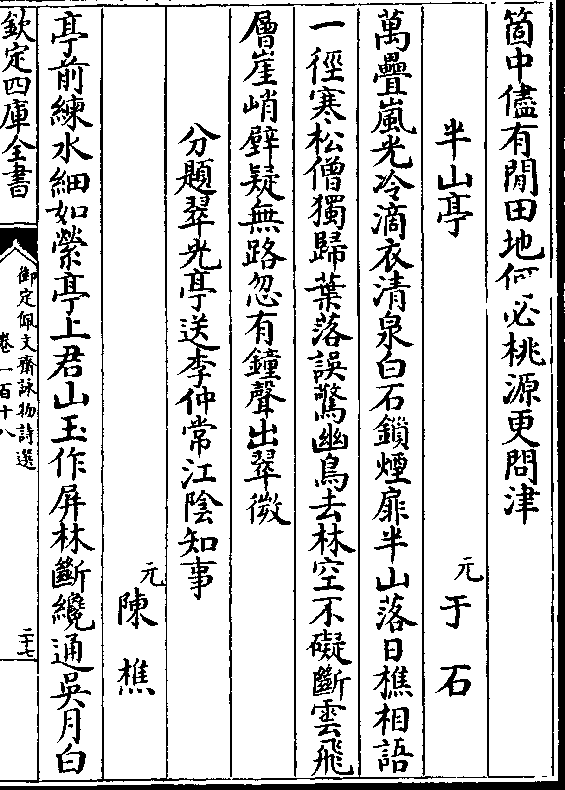 箇中儘有閒田地何必桃源更問津
半山亭
元于石
萬疊嵐光冷滴衣清泉白石鎖煙扉半山落日樵相語
一徑寒松僧獨歸葉落誤驚幽鳥去林空不礙斷雲飛
層崖峭壁疑無路忽有鐘聲出翠微
分題翠光亭送李仲常江陰知事
元陳樵
亭前練水細如縈亭上君山玉作屏林斷纔通吳月白
欽定四庫全書
御定佩文齋詠物詩選
卷一百十八
二十七